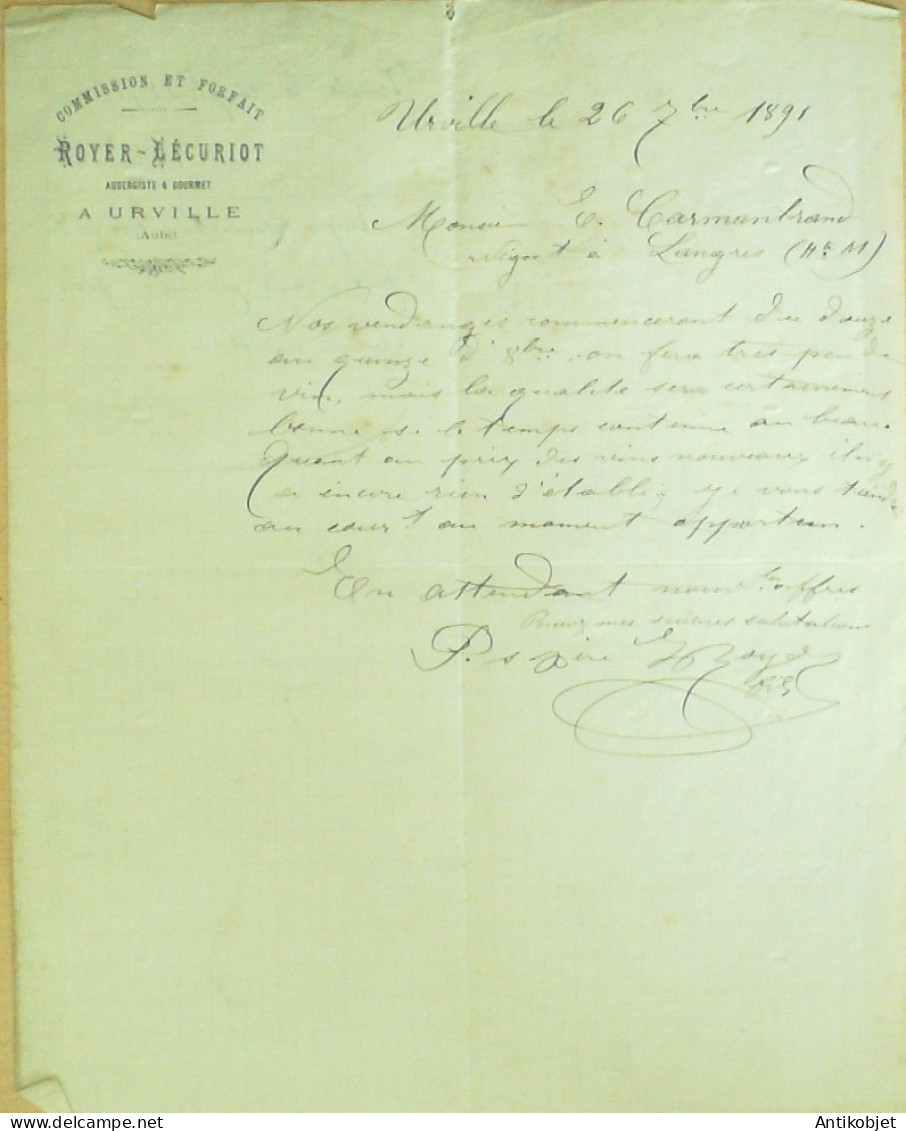 COMMISSION ET FORFAIT
ROYER-LÉCURIOT
AUBERGISTE & GOURMET
A URVILLE
(Aube)
Urville le 26 7bre 1891
Monsieur E. Carmanbrand
Négt à Langres (Hte M)
Nos vendanges commenceront du douze
au quinze d'8bre on fera très peu de
vin, mais la qualité sera certainement
bonne si le temps continue au beau.
Quant au prix des vins nouveaux il n'y
a encore rien d'établi, je vous tiendrai
au cour't au moment opportun.
En attendant offres
Recevez mes sincères salutations
P.
Antikobjet